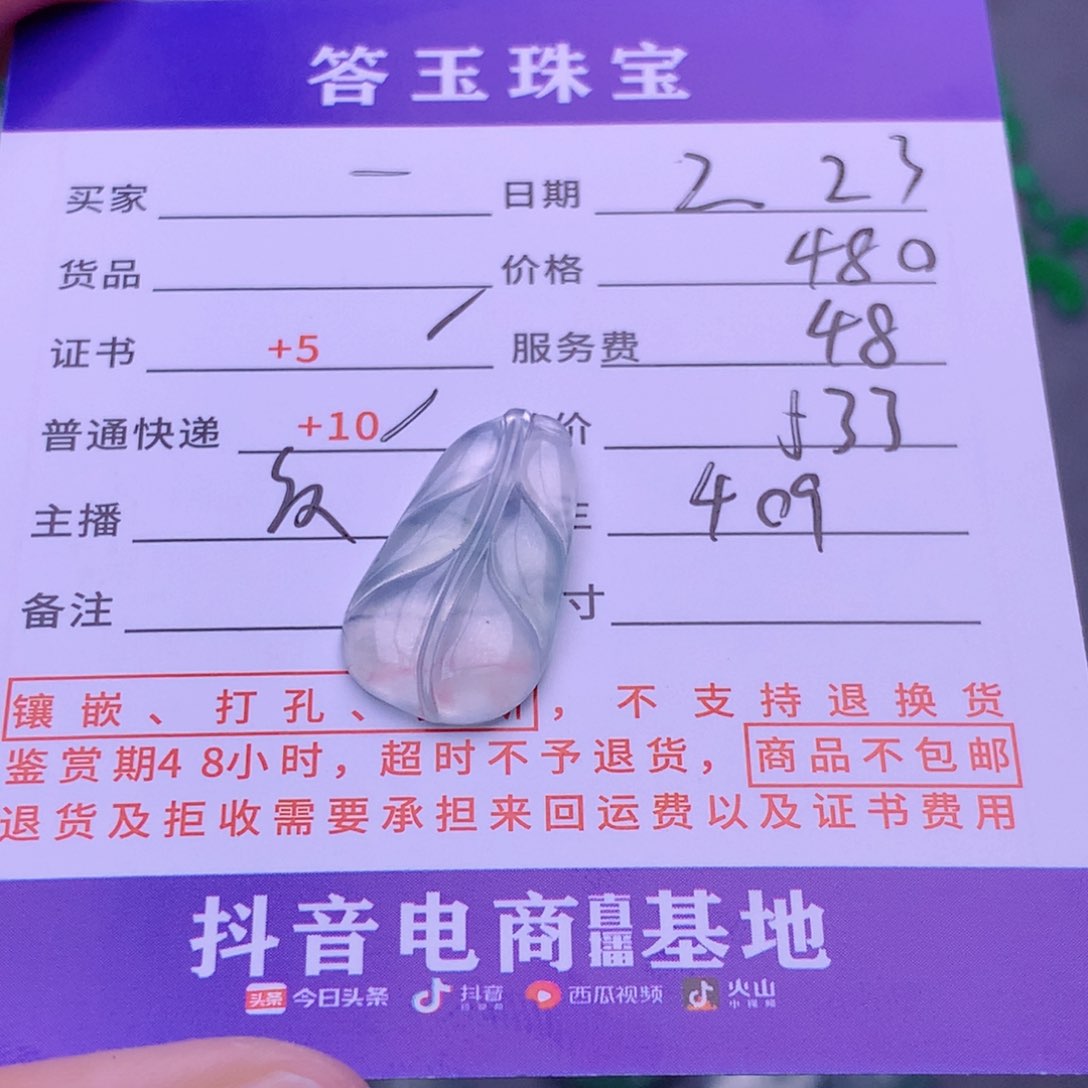 答玉珠宝
买家 一 日期 2 23
货品 价格 480
证书 +5 / 服务费 48
普通快递 +10 / 价 533
主播 409
备注 寸
镶嵌、打孔、，不支持退换货
鉴赏期48小时，超时不予退货，商品不包邮
退货及拒收需要承担来回运费以及证书费用
抖音电商直播基地
头条 今日头条 抖音 西瓜视频 火山